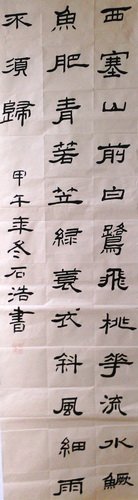 西塞山前白鷺飛桃華流水鱖
魚肥青箬笠綠蓑衣斜風細雨
不須歸
甲午年冬石浩書